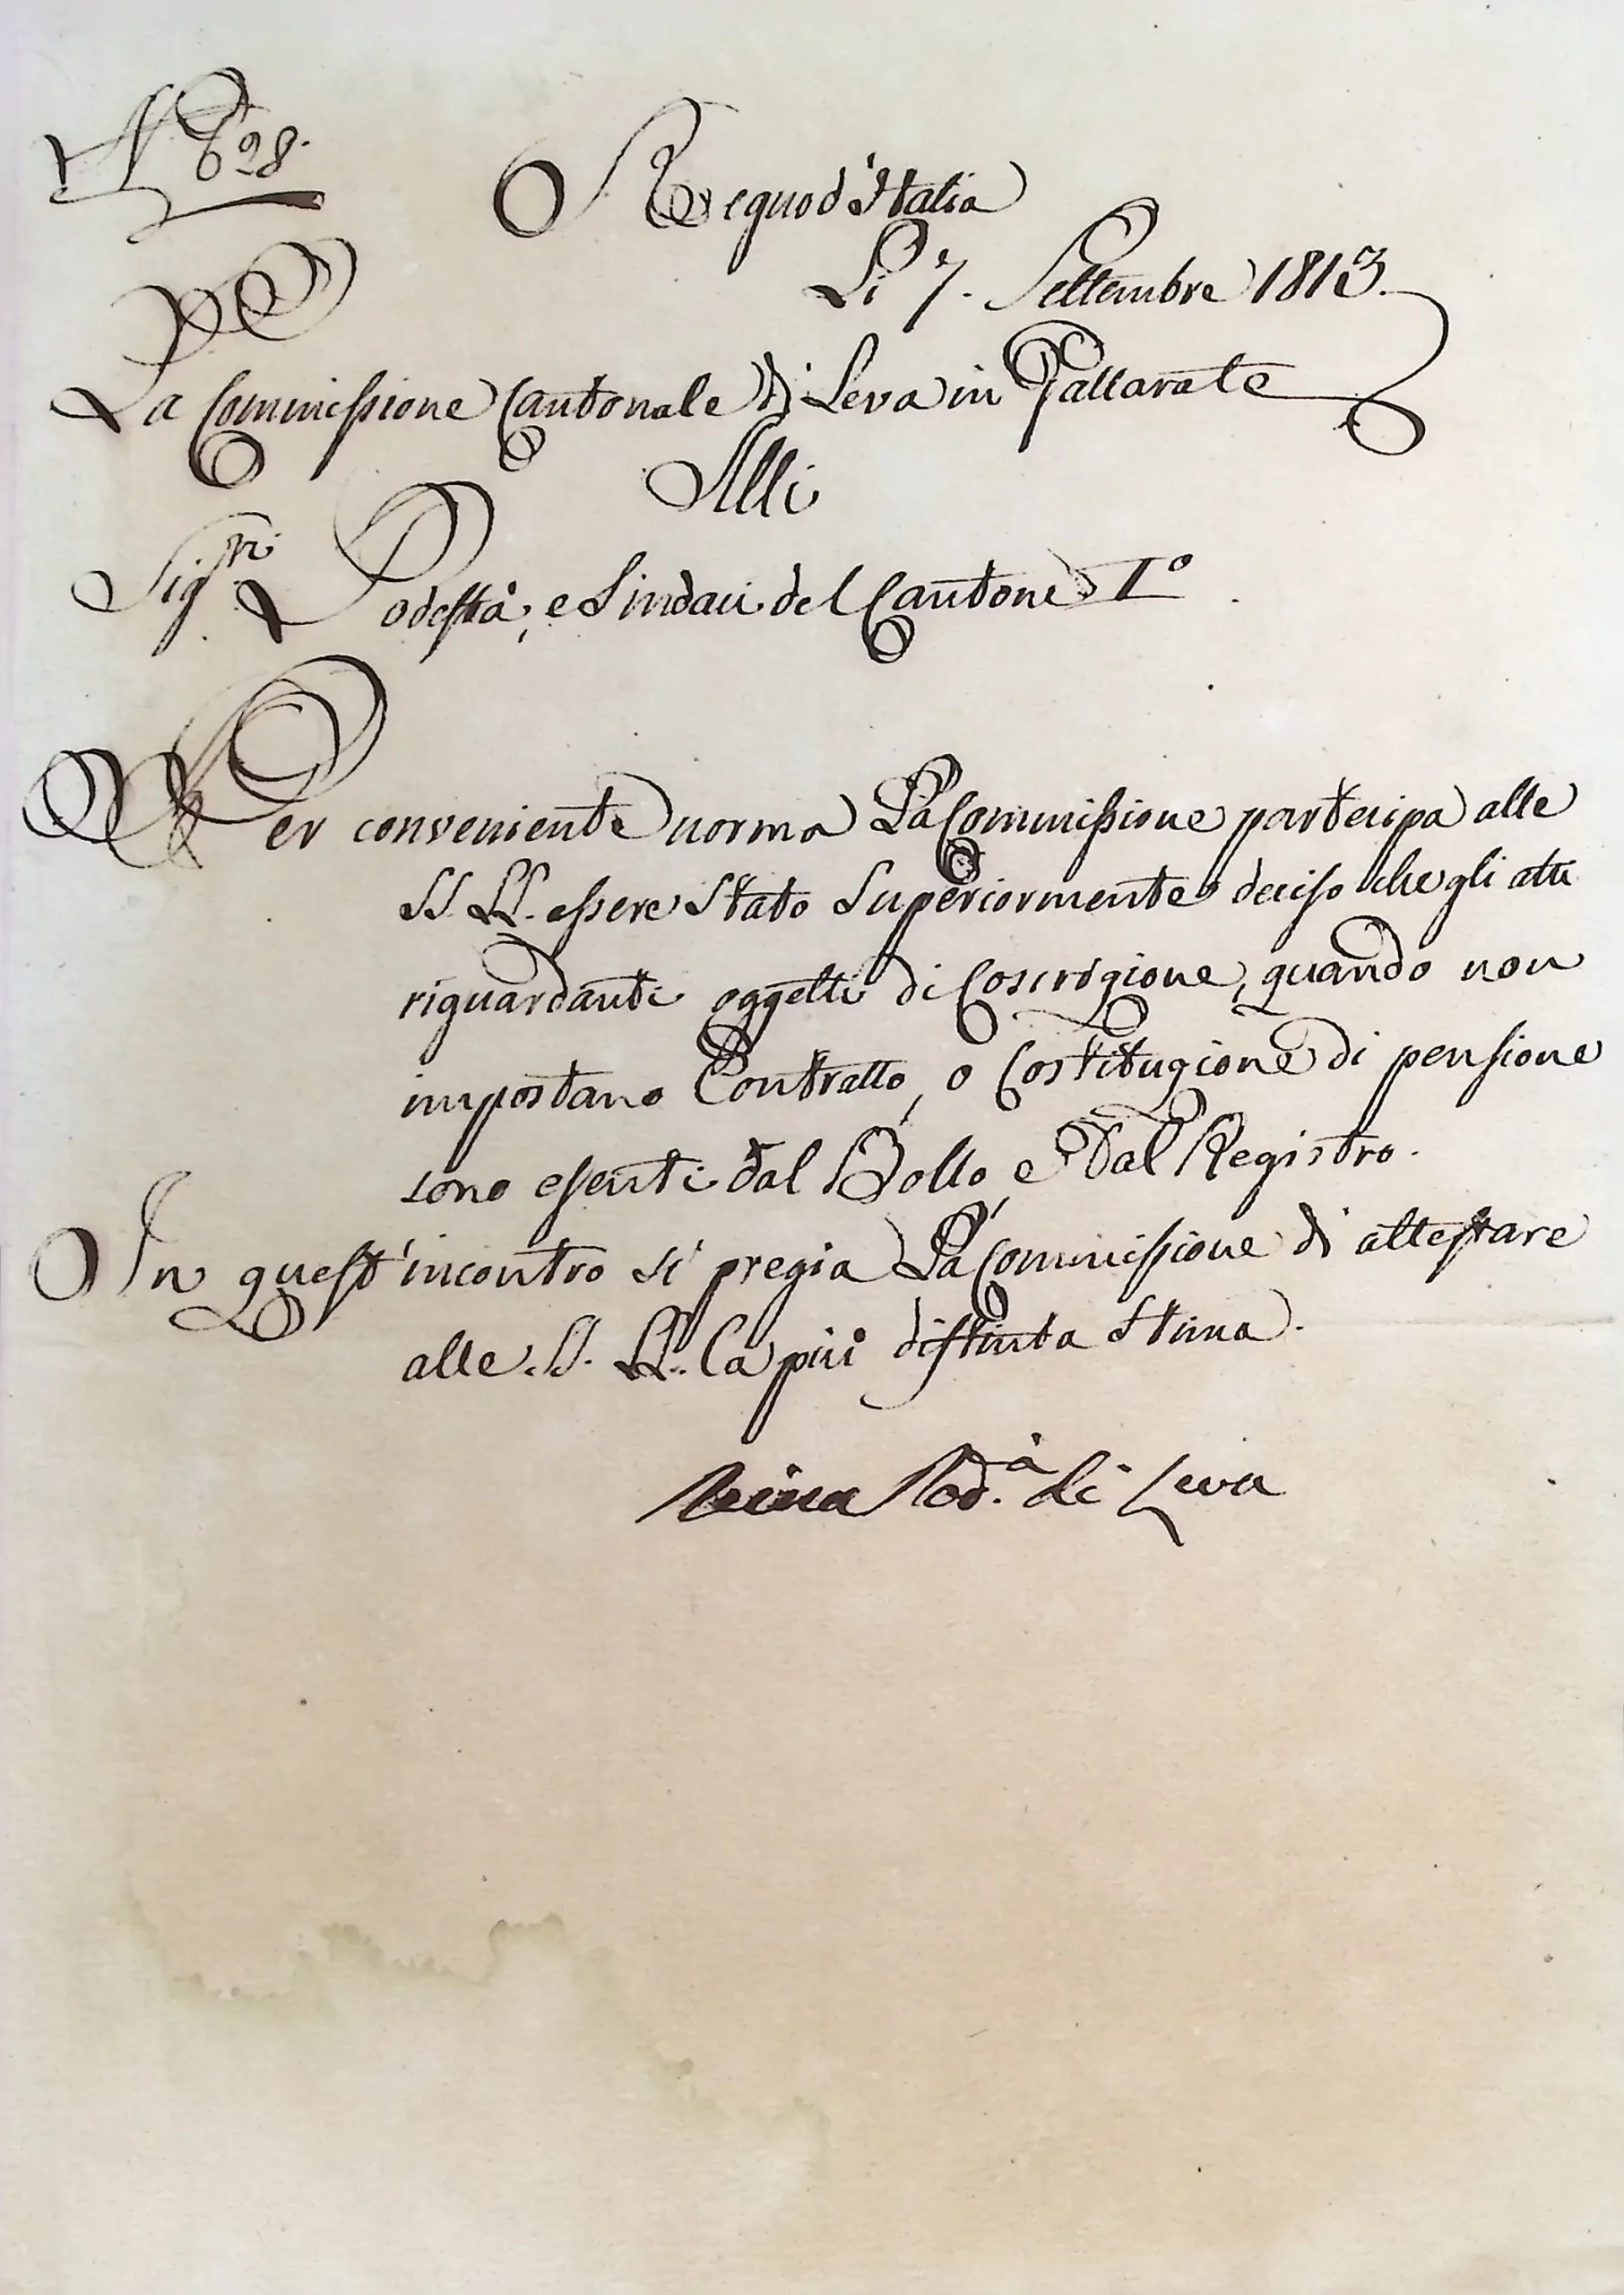 N. 628.
Regno d'Italia
Li 7. Settembre 1813.
La Commissione Cantonale di Leva in Gallarate
Alli
Sig.ri Podestà, e Sindaci del Cantone I°
Per conveniente norma La Commissione partecipa alle
SS. LL. essere stato Superiormente deciso che gli atti
riguardanti oggetti di Coscrizione, quando non
importano Contratto, o Costituzione di pensione
sono esenti dal Bollo, e Dal Registro.
In quest'incontro si pregia La Commissione di attestare
alle SS. LL. la più distinta stima.
Pod.à di Leva